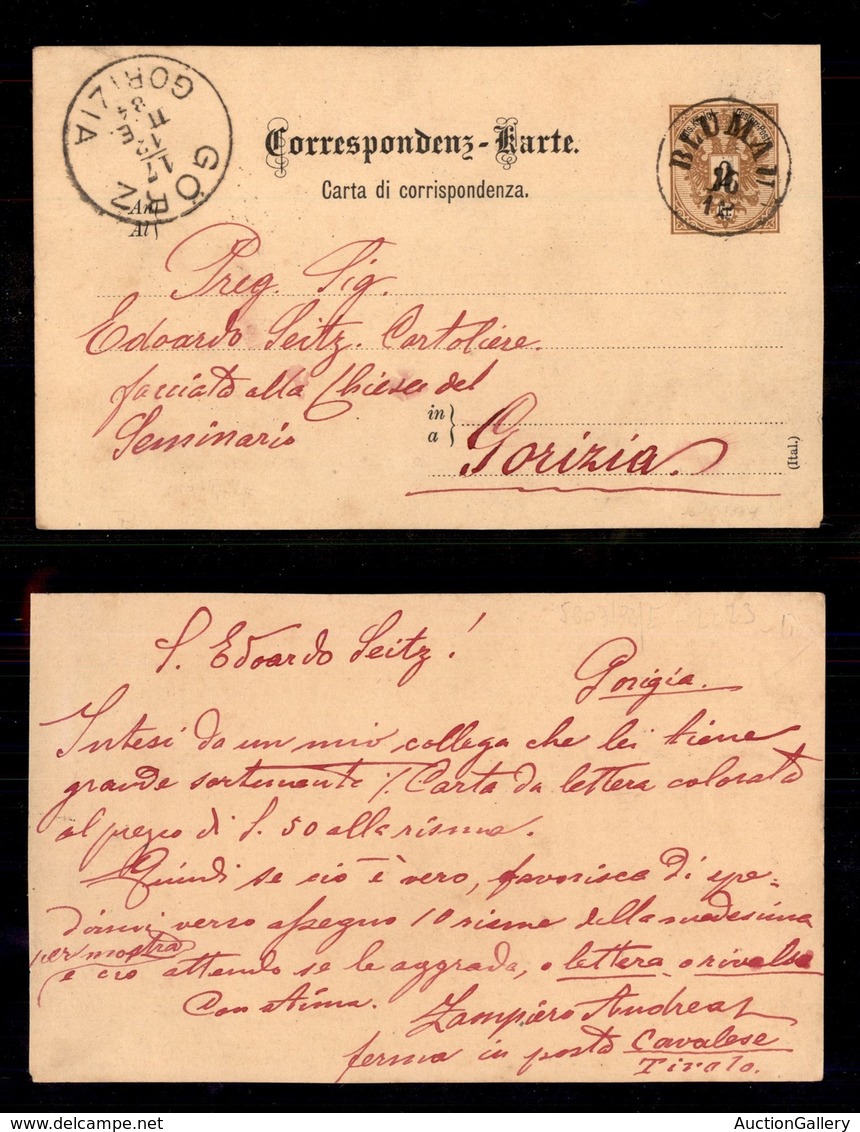 GÖRZ
GORIZIA
17
12
84
E.
Correspondenz-Karte.
Carta di corrispondenza.
BLUMAU
16
12
An
Al
Preg. Sig.
Edoardo Seitz. Cartoliere.
facciata alla Chiesa del
Seminario
in
a
Gorizia.
(Ital.)
S. Edoardo Seitz!
Gorizia.
Intesi da un mio collega che lei tiene
grande sortimento Carta da lettera colorata
al prezzo di S. 50 alla risma.
Quindi se ciò è vero, favorisca di spe-
dirmi verso assegno 10 risme della medesima
per mostra
e ciò attendo se le aggrada, o lettera o rivalsa
Con stima. Zampiero Andrea
ferma in posta Cavalese
Tirolo.
AuctionGallery